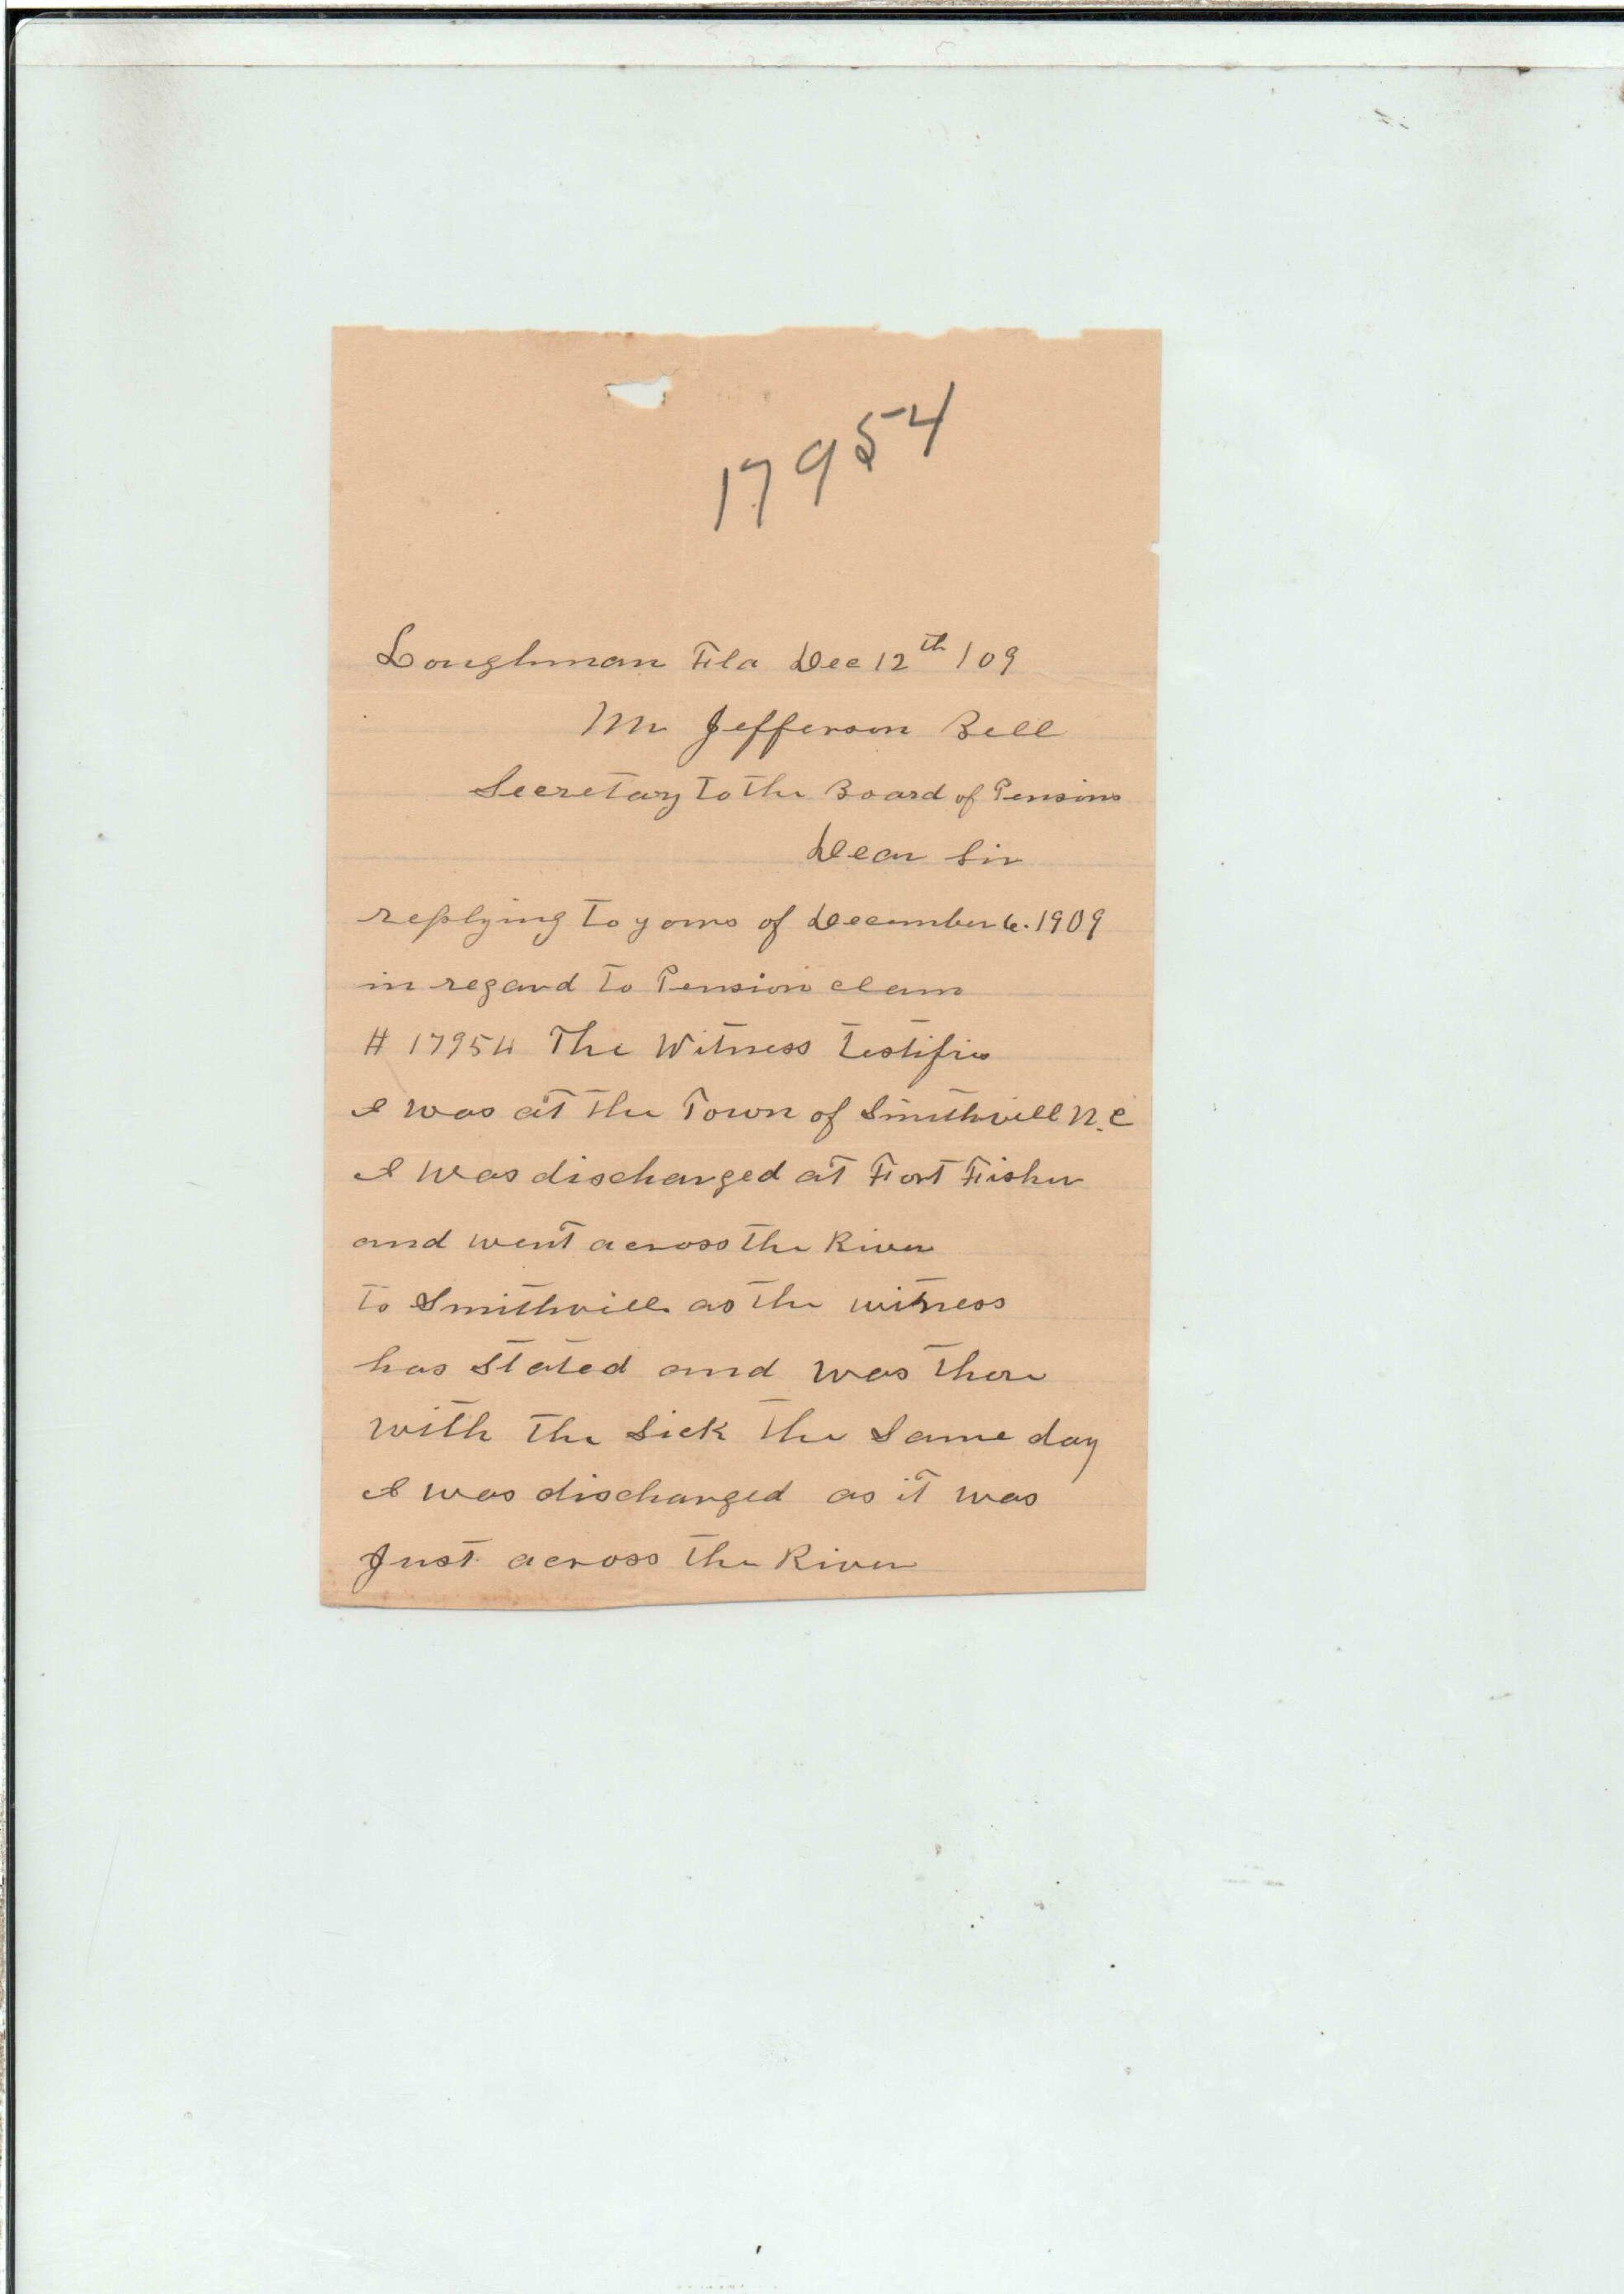 17954
Loughman Fla Dec 12th / 09
Mr Jefferson Bell
Secretary to the Board of Pensions
Dear Sir
replying to yours of December 6. 1909
in regard to Pension claim
# 17954 The Witness testifies
I was at the Town of Smithvill N.C
I was discharged at Fort Fisher
and went across the River
to Smithvill as the witness
has stated and was there
with the sick the same day
I was discharged as it was
Just across the River